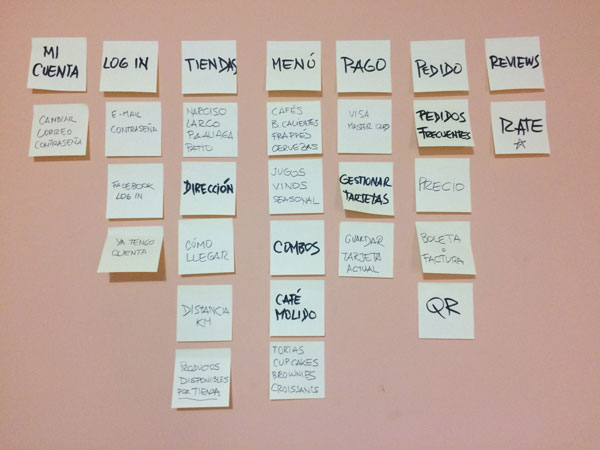 MI
CUENTA
CAMBIAR
CORREO
CONTRASEÑA
LOG IN
E-MAIL
CONTRASEÑA
FACEBOOK
LOG IN
YA TENGO
CUENTA
TIENDAS
NARCISO
LARCO
PALIAGA
PATIO
DIRECCIÓN
CÓMO
LLEGAR
DISTANCIA
KM
PRODUCTOS
DISPONIBLES
POR TIENDA
MENÚ
CAFÉS
B. CALIENTES
FRAPPÉS
CERVEZAS
JUGOS
VINOS
SEASONAL
COMBOS
CAFÉ
MOLIDO
TORTAS
CUPCAKES
BROWNIES
CROISSANTS
PAGO
VISA
MASTER CARD
GESTIONAR
TARJETAS
GUARDAR
TARJETA
ACTUAL
PEDIDO
PEDIDOS
FRECUENTES
PRECIO
BOLETA
o
FACTURA
QR
REVIEWS
RATE